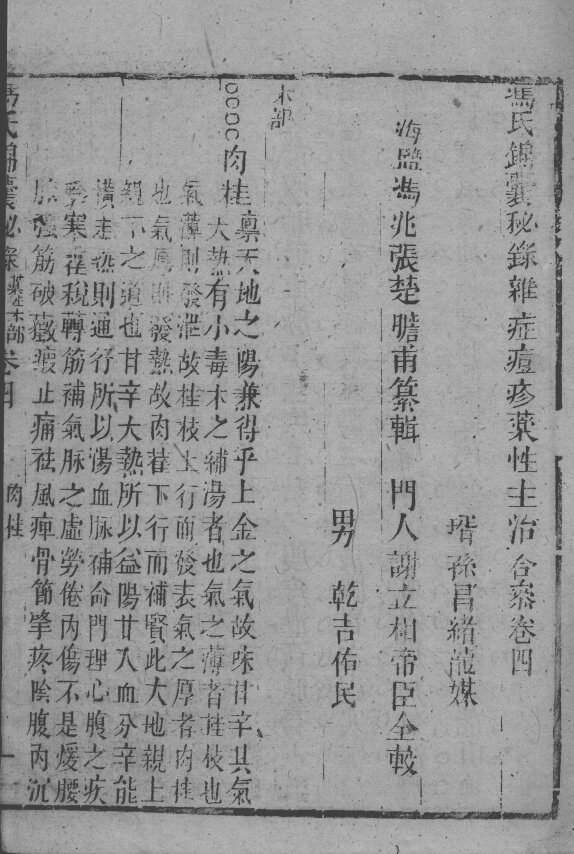 馮氏錦囊秘錄雜症痘疹藥性主治合叅卷四
壻孫昌緒 媒
海鹽馮兆張楚瞻甫纂輯 門人謝立相帝臣全較
男 乾吉佑民
木部
肉桂 稟天地之陽兼得乎上金之氣故味甘辛其氣
大熱有小毒木之補湯者也氣之薄者桂枝也
氣薄則發泄故桂枝上行而發表氣之厚者肉桂
也氣厚則發熱故肉桂下行而補腎此大地親上
親下之道也甘辛大熱所以益陽甘入血分辛能
橫走熱則通行所以湯血脉補命門理心腹之疾
寒霍亂轉筋補氣脉之虛勞倦內傷不是煖腰
筋破癥瘕止痛祛風痺骨節攣疼陰腹內沉
馮氏錦囊秘錄 木部卷四 肉桂 一